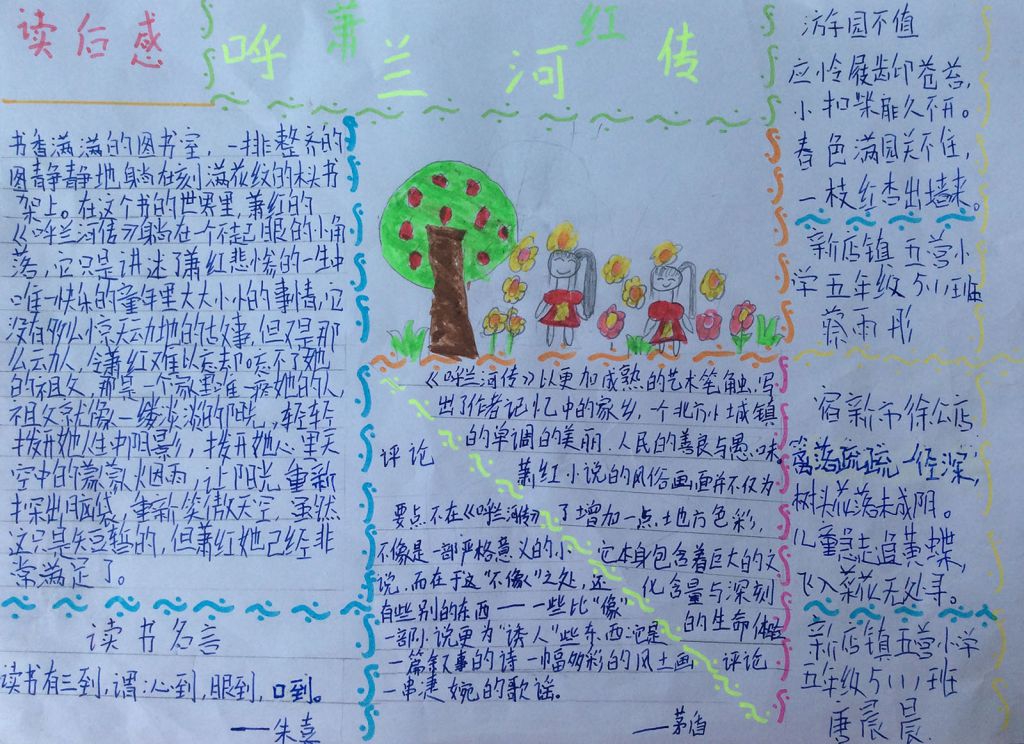 读后感
萧红
呼兰河传
书香满满的图书室，一排整齐的
图静静地躺在刻满花纹的木头书
架上。在这个书的世界里，萧红的
《呼兰河传》躺在一个不起眼的小角
落，它只是讲述了萧红悲惨的一生中
唯一快乐的童年里大大小小的事情，它
没有多么惊天动地的故事，但又是那
么动人，令萧红难以忘却忘不了她
的祖父，那是一个家里唯一疼她的人，
祖父就像一缕淡淡的阳光，轻轻
拨开她人生中阴影，拨开她心里天
空中的蒙蒙烟雨，让阳光重新
探出脑袋，重新笑傲天空，虽然
这只是短暂的，但萧红她已经非
常满足了。
读书名言
读书有三到，谓：心到，眼到，口到。
——朱熹
《呼兰河传》以更加成熟的艺术笔触，写
出了作者记忆中的家乡，一个北方小城镇
的单调的美丽、人民的善良与愚昧
萧红小说的风俗画面并不仅为
了增加一点地方色彩，
它本身包含着巨大的文
化含量与深刻
的生命体验
评论
评论
要点不在《呼兰河传》
不像是一部严格意义的小
说，而在于这“不像”之处，还
有些别的东西——一些比“像”
一部小说更为“诱人”些东西：它是
一篇叙事的诗一幅多彩的风土画
一串凄婉的歌谣。
——茅盾
游园不值
应怜屐齿印苍苔，
小扣柴扉久不开。
春色满园关不住，
一枝红杏出墙来。
新店镇五营小
学五年级5（1）班
蔡雨彤
宿新市徐公店
篱落疏疏一径深，
树头花落未成阴。
儿童急走追黄蝶，
飞入菜花无处寻。
新店镇五营小学
五年级5（1）班
唐晨晨